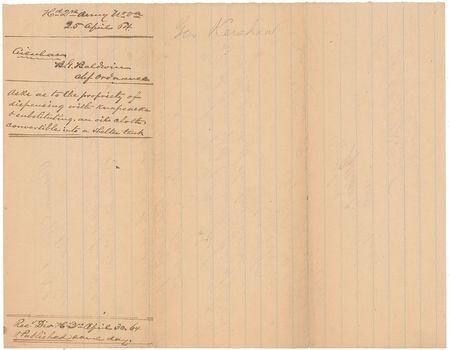 Hd Qrs Army N Va
25 April 64
Circular
B. G. Baldwin
Chf Ordnance
Asks as to the propriety of
dispensing with Knapsacks
& substituting an oil cloth
convertible into a shelter tent
Recd Div. Hd Qrs April 30. 64
& Published same day.
Gen Kershaw